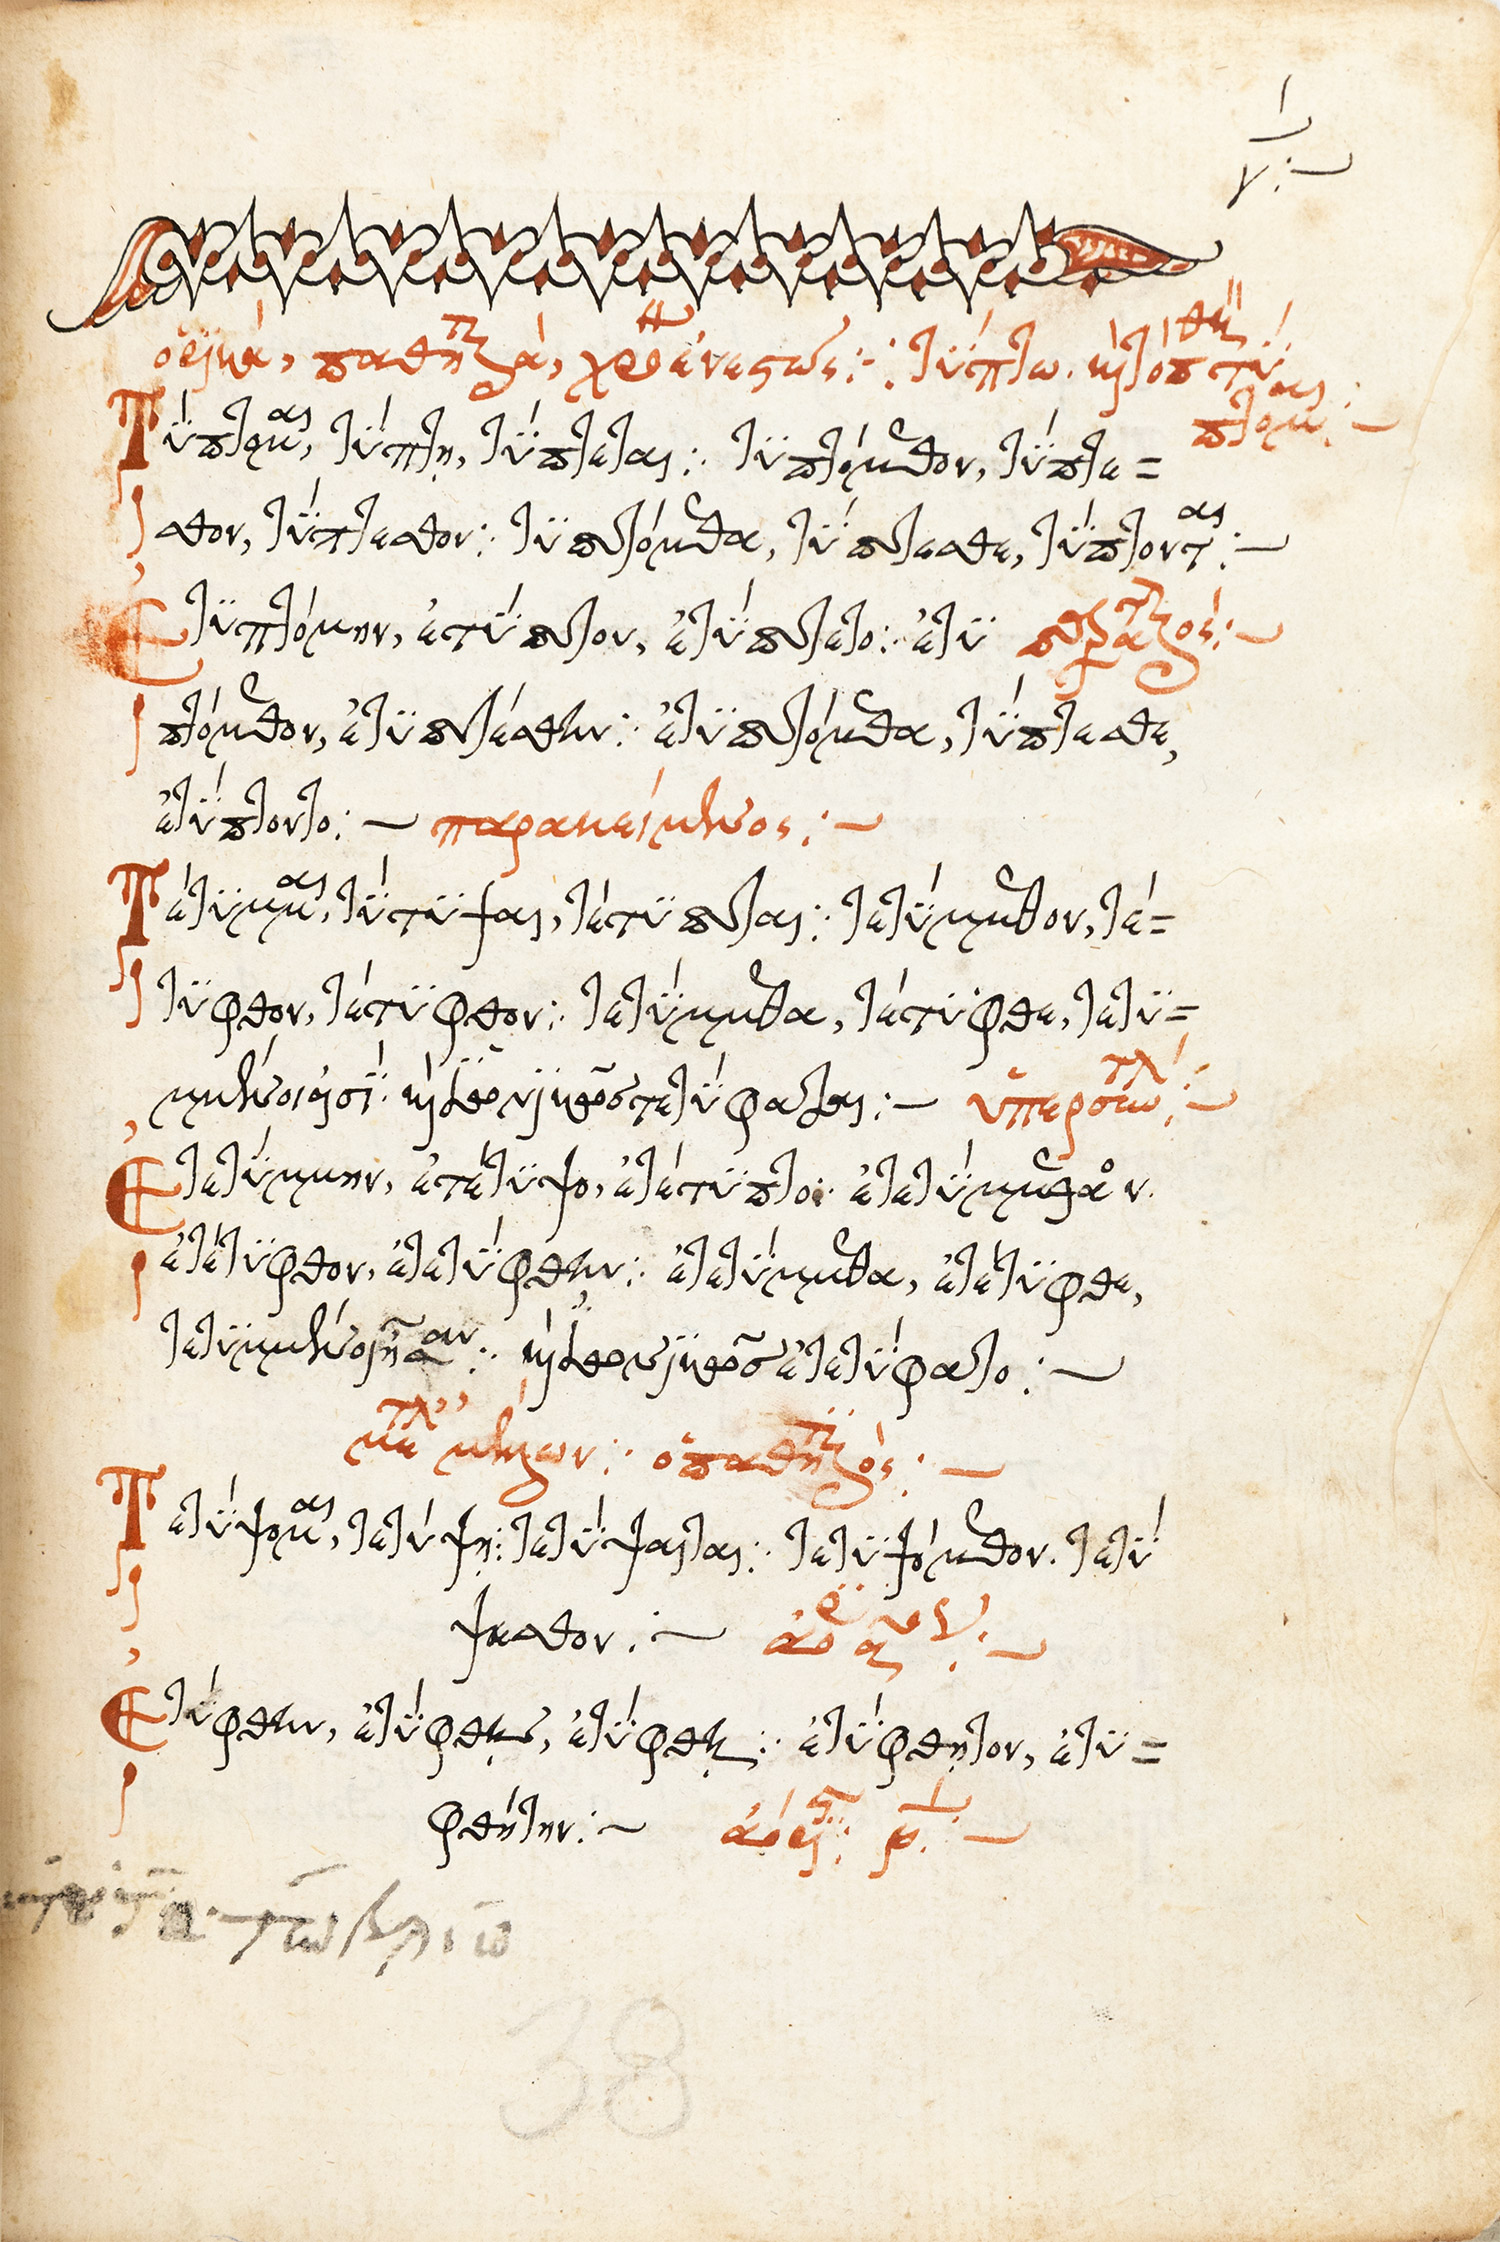 ὁριστικά, παθητικά, χρόνος ἐνεστώς:· τύπτω. τὸ παθητι τύπτομαι:—
Τύπτομαι, τύπτῃ, τύπτεται:· τυπτόμεθον, τύπτε=
σθον, τύπτεσθον:· τυπτόμεθα, τύπτεσθε, τύπτονται:—
Ἐτυπτόμην, ἐτύπτου, ἐτύπτετο:· ἐτυ παρατατικός:—
πτόμεθον, ἐτυπτέσθην:· ἐτυπτόμεθα, τύπτεσθε,
ἐτύπτοντο:— παρακείμενος:—
Τέτυμμαι, τύτυψαι, τέτυπται:· τετύμμεθον, τέ=
τυφθον, τέτυφθον:· τετύμμεθα, τέτυφθε, τετυ=
μμένοι εἰσί:· τετύφαται:— ὑπερσυντέλικος:—
Ἐτετύμμην, ἐτέτυψο, ἐτέτυπτο:· ἐτετύμμεθον.
ἐτέτυφθον, ἐτετύφθην:· ἐτετύμμεθα, ἐτέτυφθε,
τετυμμένοι ἦσαν:· ἐτετύφατο:—
μετ' ὀλίγον μέλλων:· ὁ παθητικός:—
Τετύψομαι, τετύψῃ:· τετύψεται:· τετυψόμεθον. τετύ
ψεσθον:— ἀόριστος α:—
Ἐτύφθην, ἐτύφθης, ἐτύφθη:· ἐτύφθητον, ἐτυ=
φθήτην:— ἀόριστος β:—
38